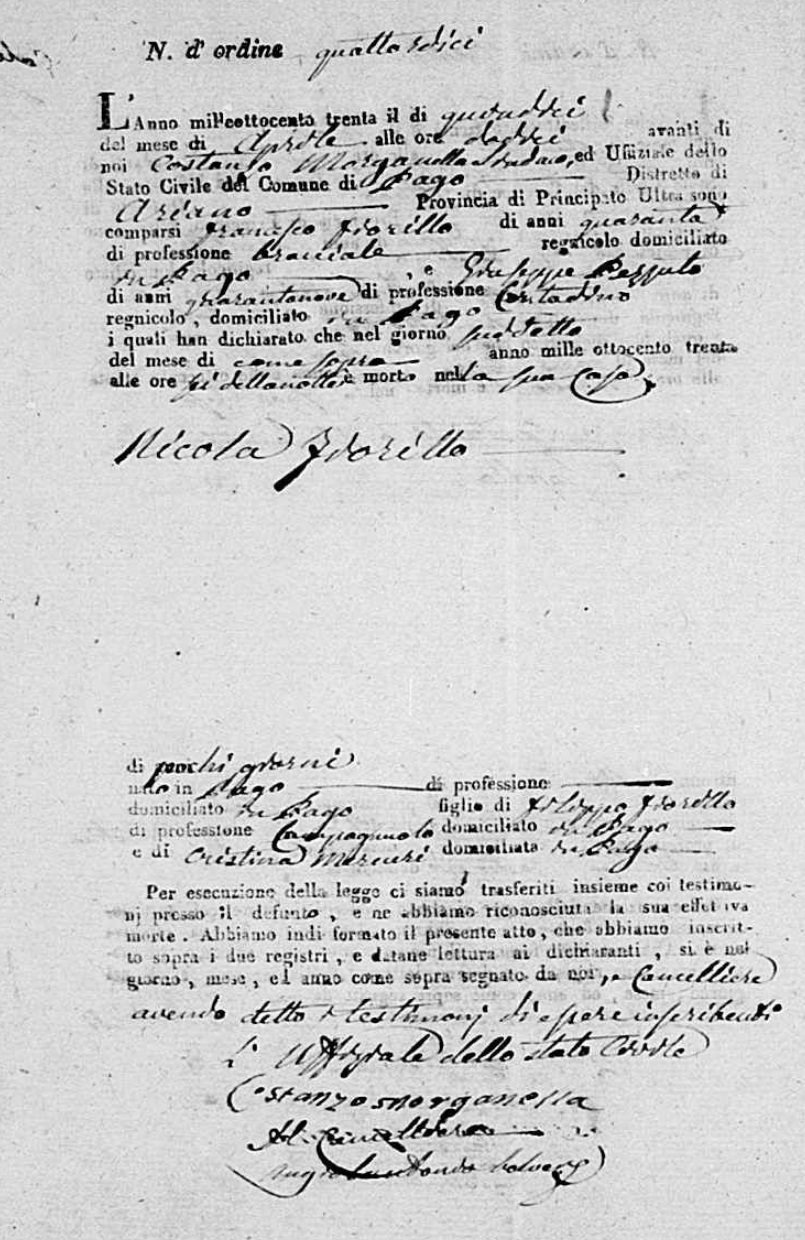 N. d' ordine quattordici
L'Anno milleottocento trenta il di quindici
del mese di Aprile alle ore dodici avanti di
noi Costanzo Morganella Sindaco, ed Uffiziale dello
Stato Civile del Comune di Pago Distretto di
Ariano Provincia di Principato Ultra sono
comparsi Francesco Fiorillo di anni quaranta
di professione braciale regnicolo domiciliato
in Pago , e Giuseppe Pezzuto
di anni quarantanove di professione Contadino
regnicolo, domiciliato in Pago
i quali han dichiarato che nel giorno suddetto
del mese di come sopra anno mille ottocento trenta
alle ore sei della notte è morto nella sua Casa
Nicola Fiorillo
di pochi giorni
nato in Pago di professione
domiciliato in Pago figlio di Filippo Fiorillo
di professione Campagnolo domiciliato in Pago
e di Cristina Mercuri domiciliata in Pago
Per esecuzione della legge ci siamo trasferiti insieme coi testimo-
nj presso il defunto, e ne abbiamo riconosciuta la sua effettiva
morte. Abbiamo indi formato il presente atto, che abbiamo inscrit-
to sopra i due registri, e datane lettura ai dichiaranti, si è nel
giorno, mese, ed anno come sopra segnato da noi, e Cancelliere
avendo detto i testimonj di essere inscribenti
L' Uffiziale dello stato Civile
Costanzo Morganella
Il Cancelliere